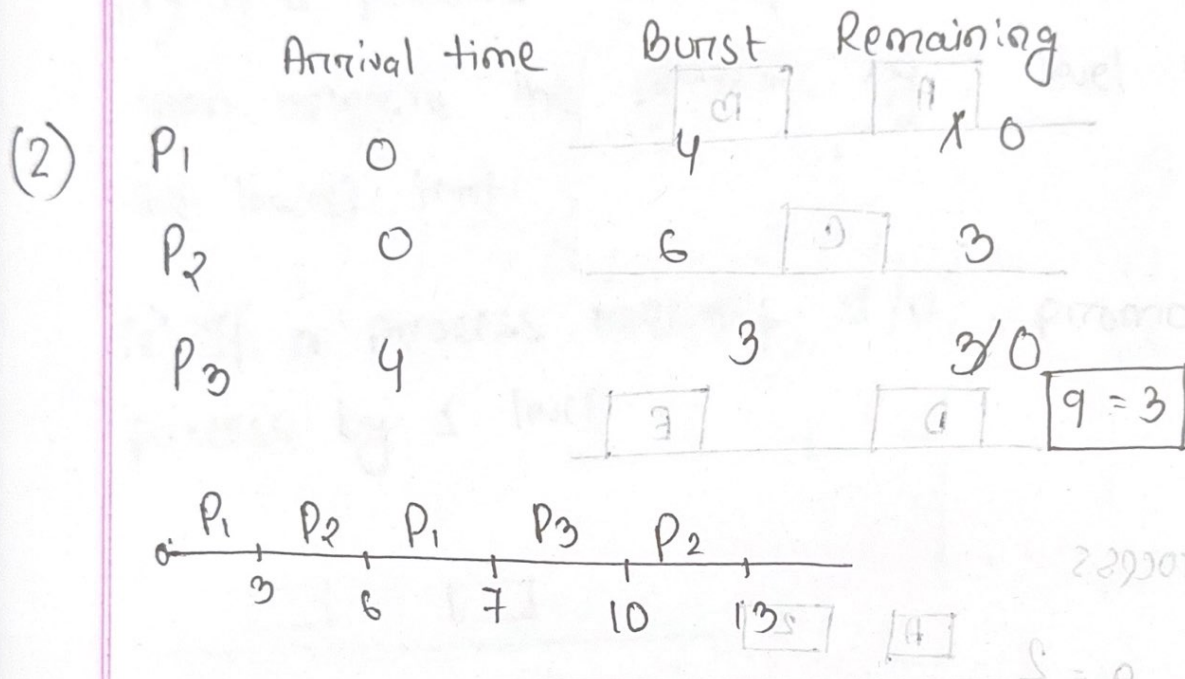 Arrival time Burst Remaining
(2) P1 0 4 1 0
P2 0 6 3
P3 4 3 3 0
q = 3
P1 P2 P1 P3 P2
0 3 6 7 10 13